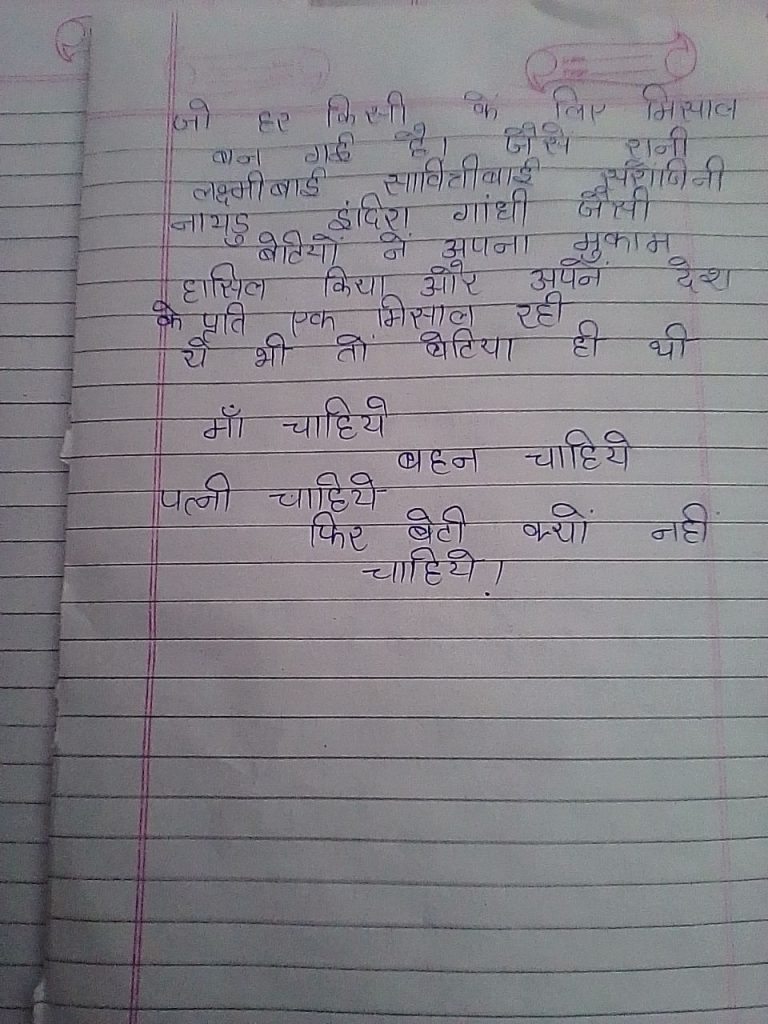 जो हर किसी के लिए मिसाल
बन गई है। जैसे रानी
लक्ष्मीबाई सावित्रीबाई सरोजिनी
नायडु इंदिरा गांधी जैसी
बेटियों ने अपना मुकाम
हासिल किया और अपने देश
के प्रति एक मिसाल रही
ये भी तो बेटिया ही थी
माँ चाहिये
बहन चाहिये
पत्नी चाहिये
फिर बेटी क्यों नहीं
चाहिये!